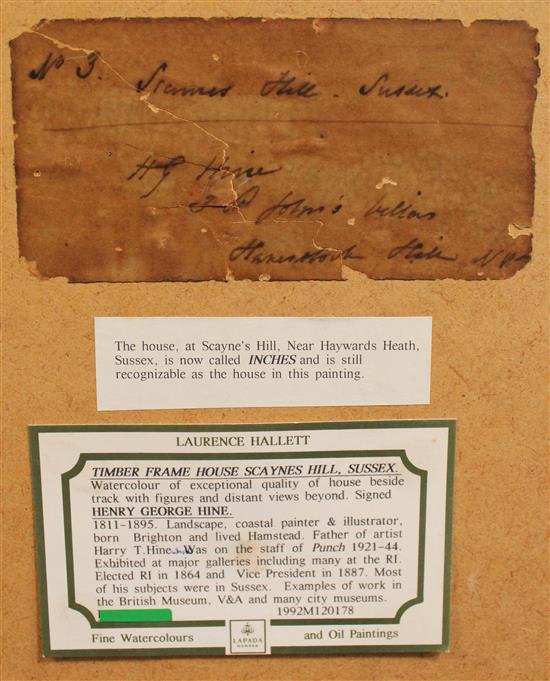 No 3. Scaines Hill - Sussex.
HG Hine
2 St John's Villas
Haverstock Hill N W
The house, at Scayne's Hill, Near Haywards Heath,
Sussex, is now called INCHES and is still
recognizable as the house in this painting.
LAURENCE HALLETT
TIMBER FRAME HOUSE SCAYNES HILL, SUSSEX.
Watercolour of exceptional quality of house beside
track with figures and distant views beyond. Signed
HENRY GEORGE HINE.
1811-1895. Landscape, coastal painter & illustrator,
born Brighton and lived Hamstead. Father of artist
Harry T.Hine Was on the staff of Punch 1921-44.
Exhibited at major galleries including many at the RI.
Elected RI in 1864 and Vice President in 1887. Most
of his subjects were in Sussex. Examples of work in
the British Museum, V&A and many city museums.
1992M120178
Fine Watercolours LAPADA MEMBER and Oil Paintings